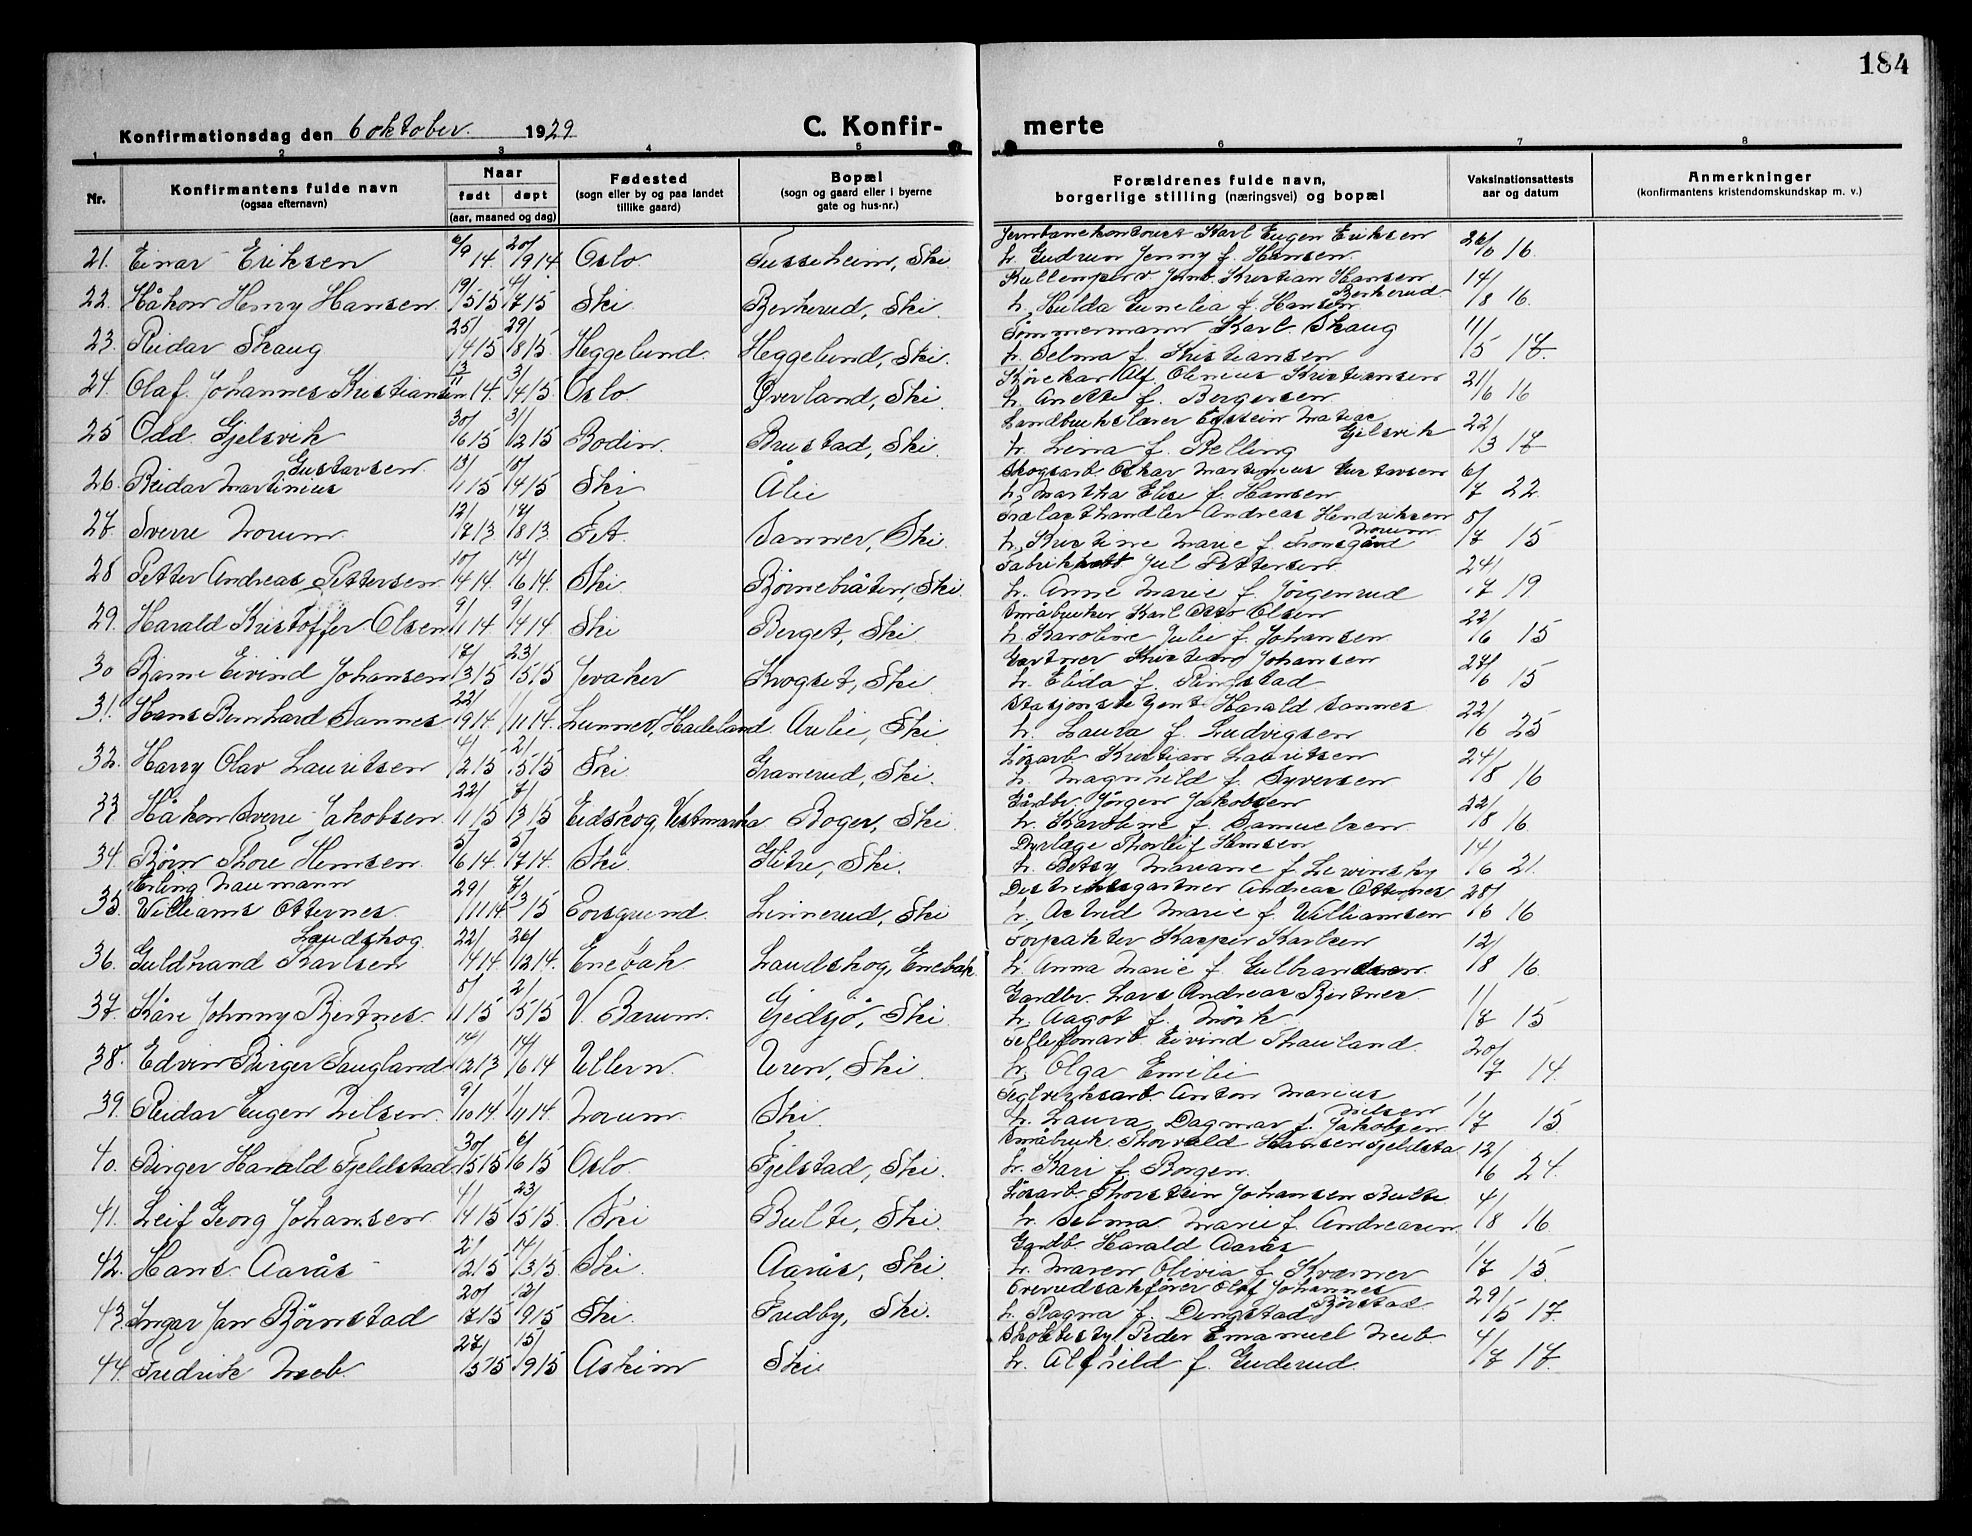 184
Konfirmationsdag den 6 oktober 1929 C. Konfirmerte
1 2 3 4 5 6 7 8
Nr. Konfirmantens fulde navn (ogsaa efternavn) Naar født døpt (aar, maaned og dag) Fødested (sogn eller by og paa landet tillike gaard) Bopæl (sogn og gaard eller i byerne gate og hus-nr.) Forældrenes fulde navn, borgerlige stilling (næringsvei) og bopæl Vaksinationsattests aar og datum Anmerkninger (konfirmantens kristendomskundskap m. v.)
21. Einar Eriksen 6/9 14. 20/9 14 Oslo. Tusseheim, Ski Karl Eugen Eriksen
h. Gudrun Jenny f. Hansen 16
22. Håkon Henry Hansen 19/5 15 4/7 15 Ski Berkerud, Ski. Kristian Hansen Berkerud
h. Hulda f. Hansen 14/8 16.
23. Reidar Skaug 25/4 15 29/8 15. Heggelund. Heggelund, Ski. Tømmermann Karl Skaug
h. Selma f. Kristiansen 11/5 17.
24. Olaf Johannes Kristiansen 13/11 14. 3/4 15. Oslo Øverland, Ski. Alf Olenius Kristiansen
h. Anette f. Bergersen 21/6 16
25 Odd Gjelsvik 30/6 15 31/12 15 Bodin. Brustad, Ski. Landbrukslærer Gjelsvik
h. Lina f. Relling 22/3 17
26. Reidar Martinius Gustavsen 13/1 15 Ski Ålie Skogsarb. Oskar Martinius Gustavsen
h. Martha Elise f. Hansen 6/7 22.
27. Sverre Norum 12/7 13 17/8 13. Fet. Sanner, Ski. Trælasthandler Andreas Hendriksen Norum
h. Kristine Marie f. 15
28 Petter Andreas Pettersen 10/4 14. 14/6 14. Ski. Børnebråten, Ski. Jul Pettersen
h. Anne Marie f. Jörgenrud 24/7 19
29. Harald Kristoffer Olsen 9/1 14 9/4 14. Ski Berget, Ski. Småbruker Karl Otto Olsen
h. Karoline Julie f. Johansen 22/6 15
30 Bjarne Eivind Johansen 17/3 15 23/5 15 Jevaker Krogset, Ski. Gartner Kristian Johansen
h. Elida f. Ringstad 27/6 15
31. Hans Bernhard Sannes 22/9 14 1/11 14. Lunner, Hadeland Aulie, Ski. Harald Sannes
h. Laura f. Ludvigsen 22/6 25
32. Harry Olav Lauritsen 4/2 15 2/5 15 Ski. Granerud, Ski. Løsarb. Kristian Lauritsen
h. Magnhild f. Syversen 24/8 16
33 Håkon Sverre Jakobsen 22/1 15 7/3 15 Eidskog, Vestmarka Boger, Ski. Gårdbr. Jörgen Jakobsen
h. Karoline f. Samuelsen 22/8 16.
34. Børn Thore Hemsen 5/6 14. 5/7 14. Ski. Glitre, Ski. Dyrlæge Thorleif Hemsen
h. Betsy Mariane f. Levinsky 14/6 21.
35. Erling Naumann Williams Otternes. 29/11 14 7/3 15 Porsgrund. Linnerud, Ski Andreas Otternes
h. Astrid Marie f. Williamsen 16
36. Guldbrand Karlsen Laudskog. 22/4 14 26/12 14. Enebak Laudskog, Enebak Kasper Karlsen
h. Anna Marie f. Gulbrandsen 12/8 16.
37. Kåre Johnny Bjertnes. 5/1 15 2/5 15 V. Bærum. Gjedsjø, Ski. Gardbr. Lars Andreas Bjertnes.
h. Aagot f. Mörk 1/8 15
38. Edvin Birger Taugland 14/12 13 14/6 14 Ullern. Uren, Ski. Tellefonarb. Eivind Thauland.
h. Olga Emilie 20/7 14.
39. Reidar Eugen Nilsen 9/10 14. 1/11 14. Norum Ski. Teglverksarb. Anton Marius Nilsen
h. Laura Dagmar f. Jakobsen 1/7 15
40. Birger Harald Fjeldstad 30/5 15 6/6 15 Oslo. Fjelstad, Ski. Småbruk. Thorvald Hansen Fjeldsta
h. Kari f. Borgen. 12/6 24.
41. Leif Georg Johansen 4/4 15 23/5 15. Ski Bulte, Ski. Løsarb. Thorstein Johansen Bulte
h. Selma Marie f. Andreasen 4/8 16
42. Hans Aarås 2/2 15 14/3 15. Ski. Aarås, Ski. Gardb. Harald Aarås
h. Maren Olivia f. Kværner 1/7 15.
43. Ingar Jan Börnstad 20/7 15 12/9 15 Ski. Finby, Ski. Overretsakfører Olaf Johannes Börstad
h. Ragna f. Dingstad 29/5 17.
44. Fredrik Moeb. 27/5 15 15/9 15 Askim Ski Peder Emanuel Meeb.
h. Alfhild f. Guderud. 4/7 17.